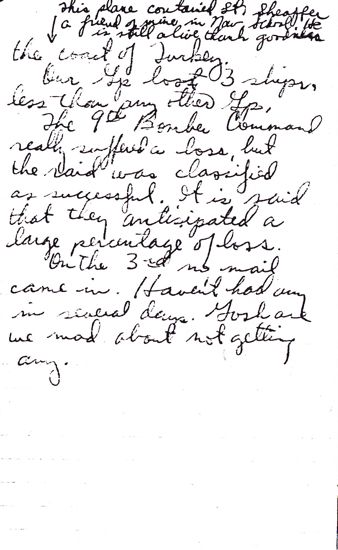 This plane contained Lt. Sheaffer
a friend of mine, in Nav School. He
is still alive, thank goodness
the coast of Turkey.
Our Gp lost 3 ships,
less than any other Gp.
The 9th Bomber Command
really suffered a loss, but
the raid was classified
as successful. It is said
that they anticipated a
large percentage of loss.
On the 3rd no mail
came in. Haven't had any
in several days. Gosh are
we mad about not getting
any.